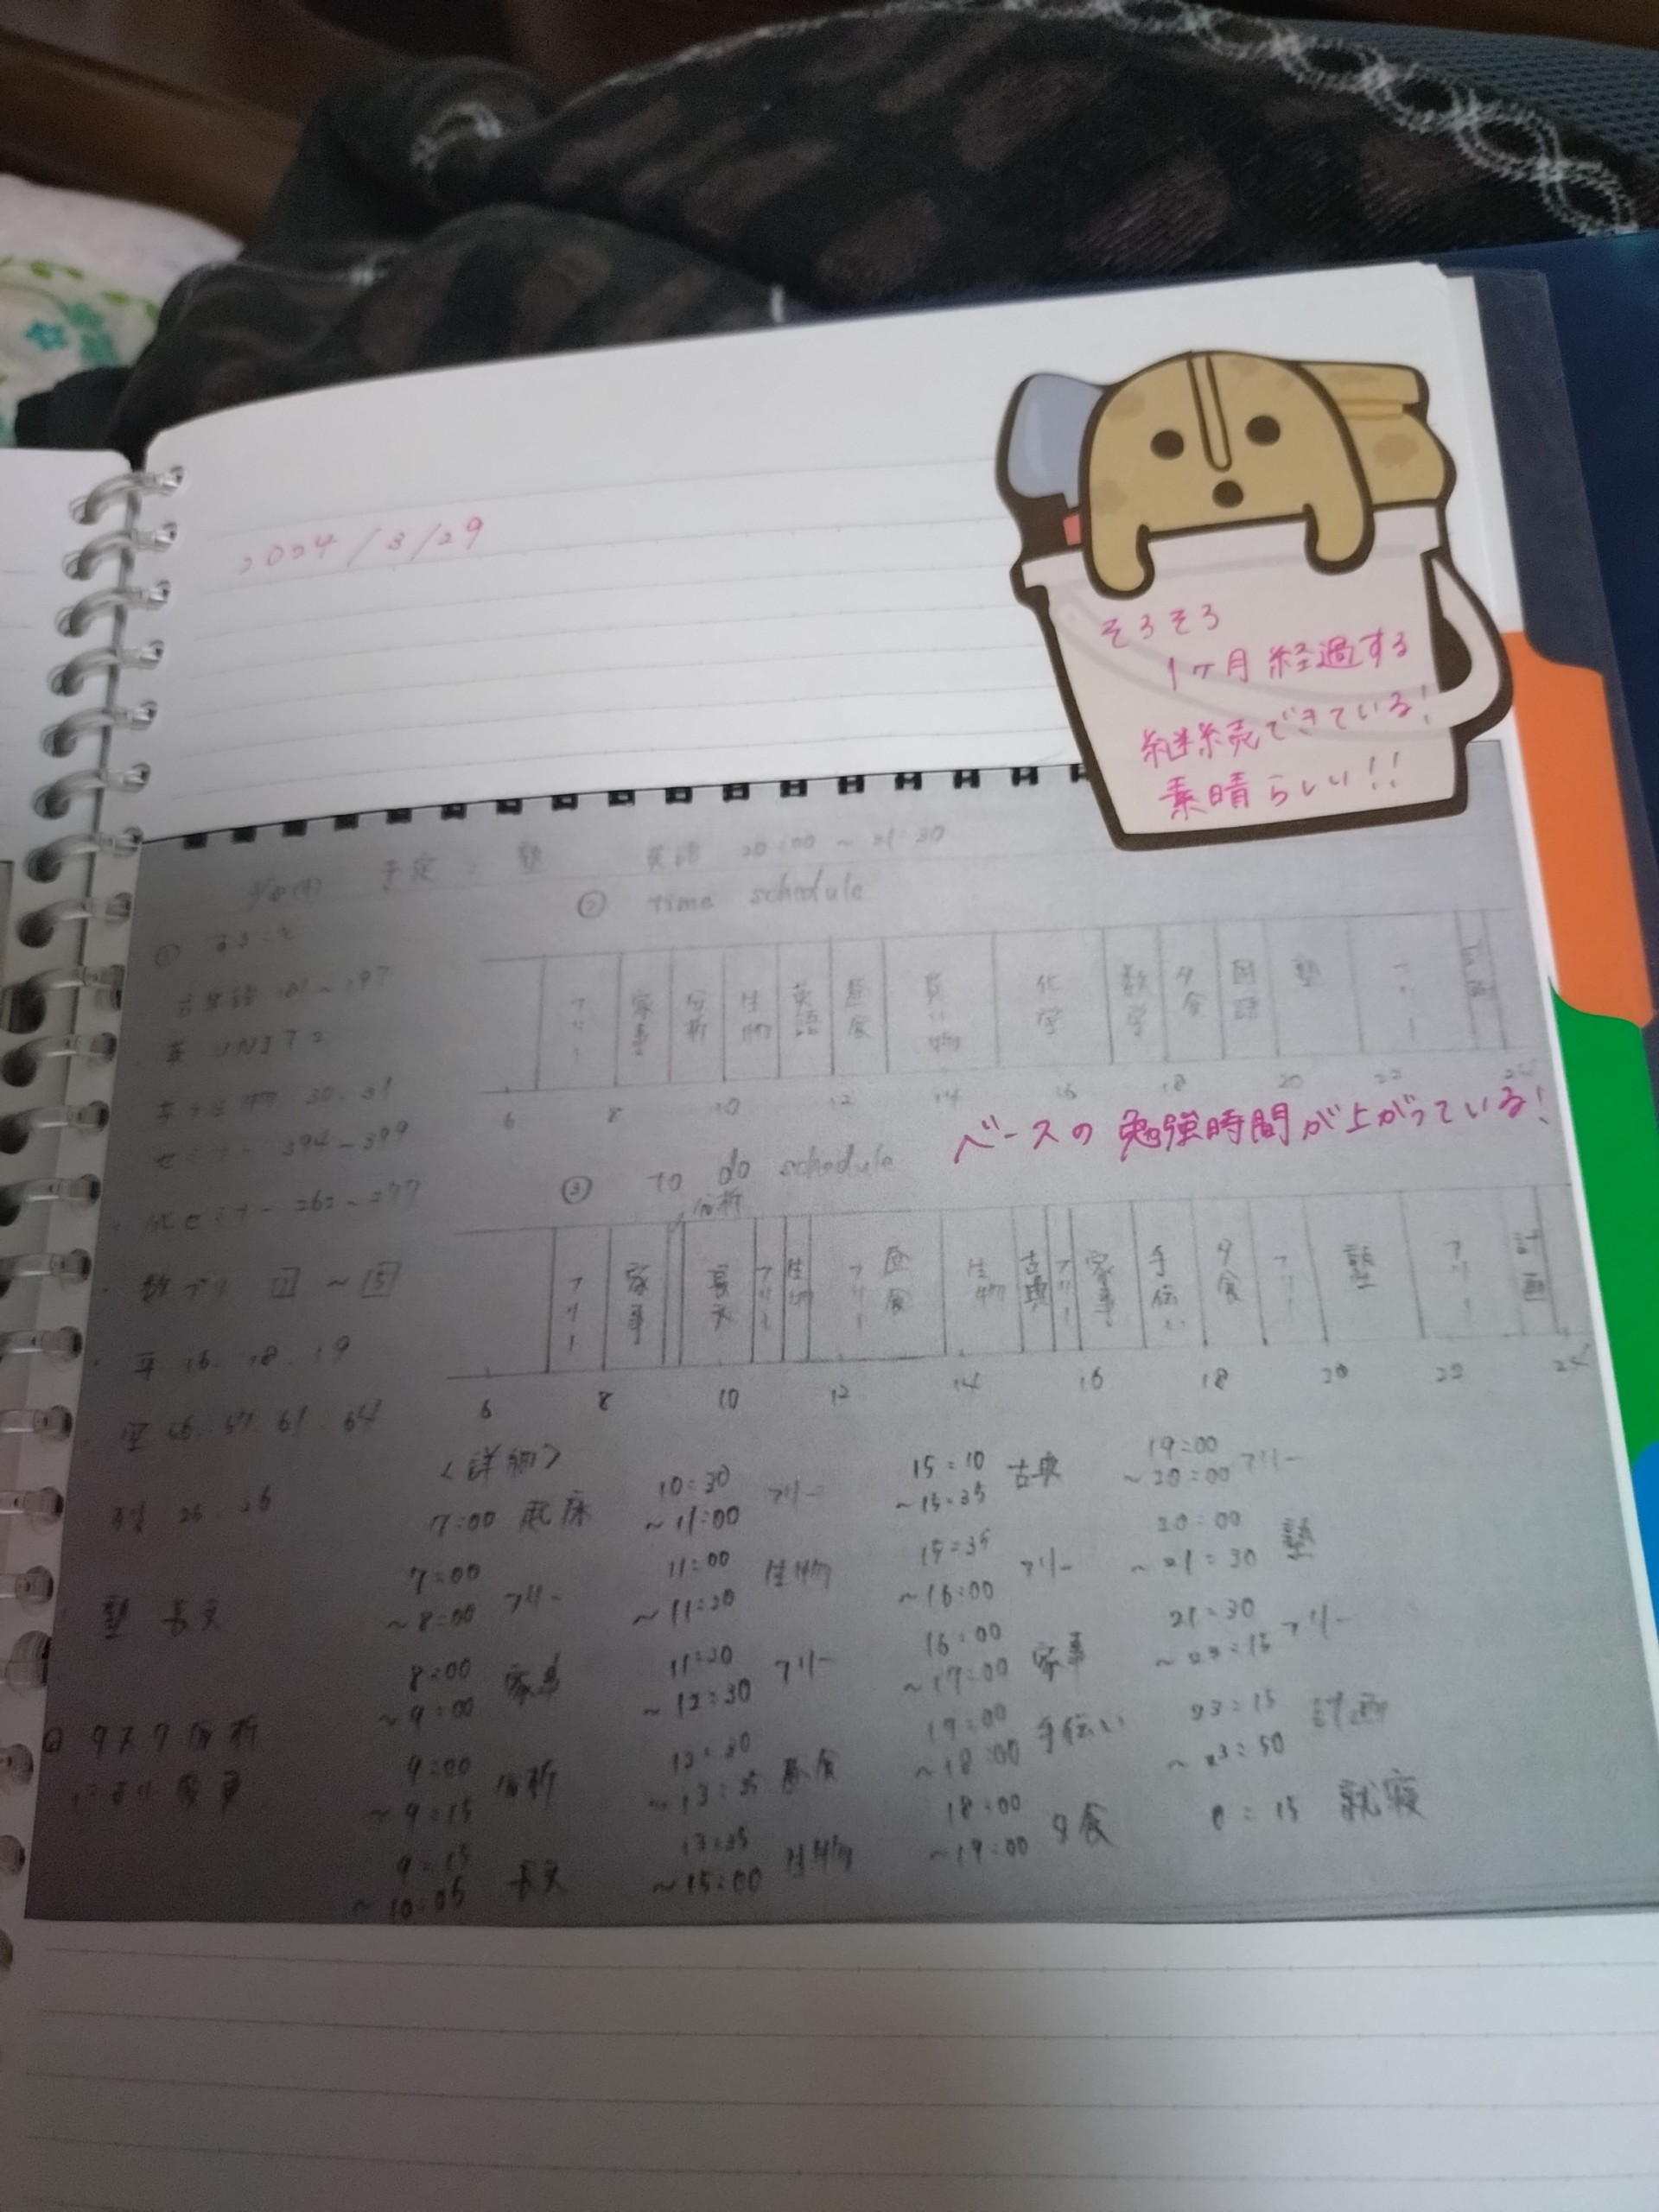 2024/3/29
そろそろ
1ヶ月経過する
継続できている!
素晴らしい!!
予定: 塾 英語 20:00~21:30
① やること
② time schedule
英 UNIT 2
30.31
394~399
262~277
数
平 16. 18. 19
61. 64
列 25. 26
塾 長文
タスク分析
フリー
家事
分析
生物
英語
昼食
買い物
化学
数学
夕食
国語
塾
フリー
計画
6 8 10 12 14 16 18 20 22 24
ベースの勉強時間が上がっている!
③ to do schedule
分析
フリー
家事
長文
フリー
生物
フリー
昼食
生物
古典
フリー
家事
手伝い
夕食
フリー
塾
フリー
計画
6 8 10 12 14 16 18 20 22 24
<詳細>
7:00 起床
7:00
~8:00 フリー
8:00
~9:00 家事
9:00
~9:15 分析
9:15
~10:05 長文
10:30
~11:00 フリー
11:00
~11:20 生物
11:20
~12:30 フリー
~13:35 昼食
13:35
~15:00 生物
15:10
~15:35 古典
15:35
~16:00 フリー
16:00
~17:00 家事
17:00
~18:00 手伝い
18:00
~19:00 夕食
19:00
~20:00 フリー
20:00
~21:30 塾
21:30
~23:15 フリー
23:15
~23:50 計画
0:15 就寝